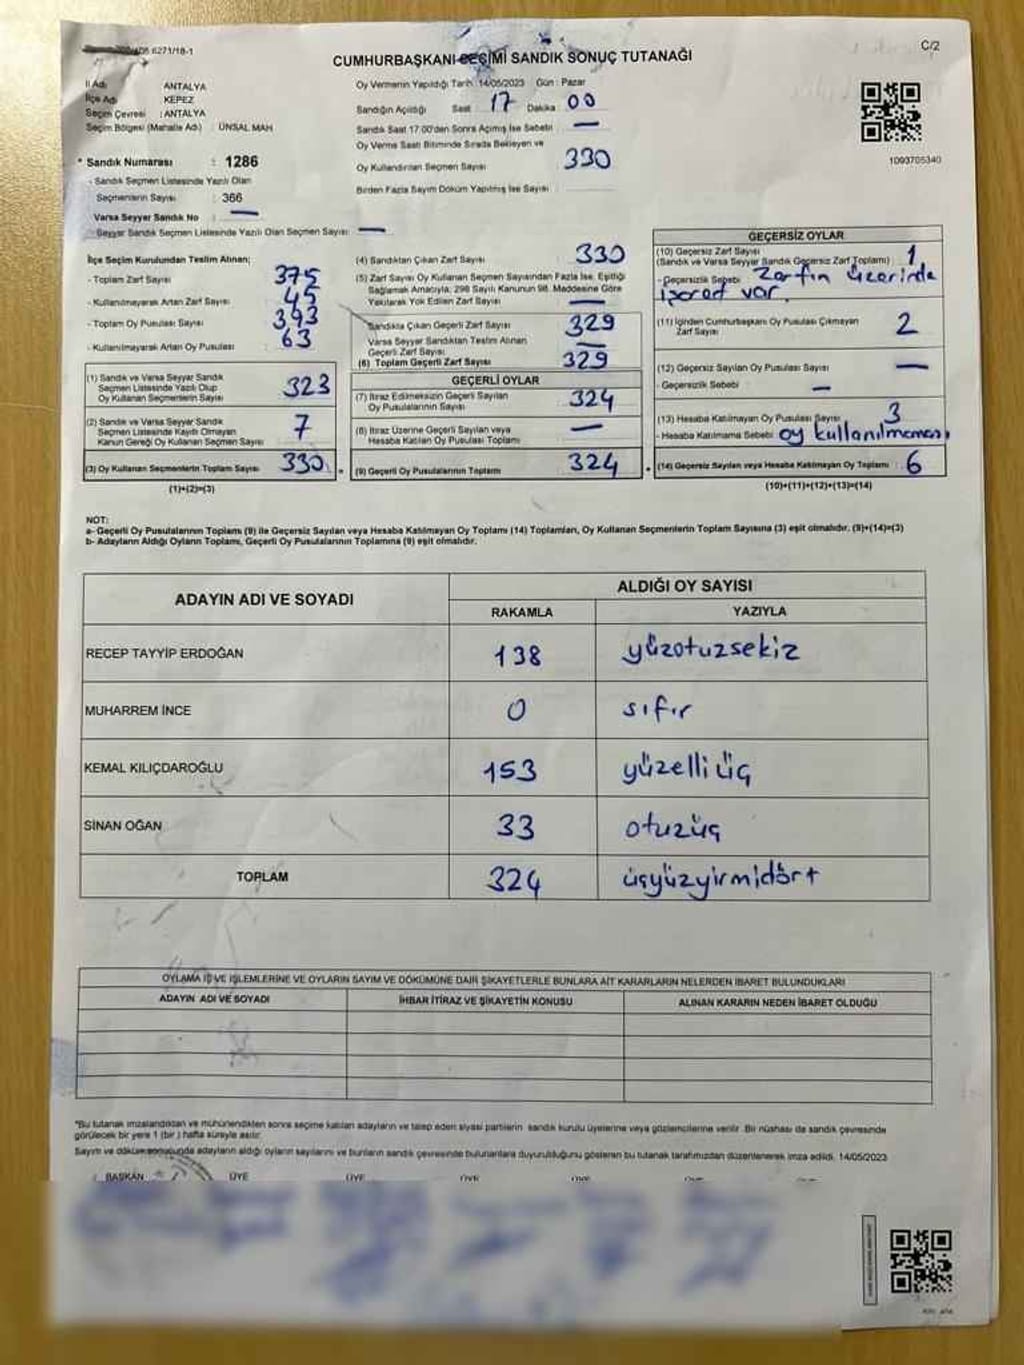 6271/18-1
C/2
CUMHURBAŞKANI SEÇİMİ SANDIK SONUÇ TUTANAĞI
İl Adı ANTALYA
İlçe Adı KEPEZ
Seçim Çevresi : ANTALYA
Seçim Bölgesi (Mahalle Adı) : ÜNSAL MAH
* Sandık Numarası : 1286
- Sandık Seçmen Listesinde Yazılı Olan
Seçmenlerin Sayısı : 366
Varsa Seyyar Sandık No —
Seyyar Sandık Seçmen Listesinde Yazılı Olan Seçmen Sayısı —
Oy Vermenin Yapıldığı Tarih : 14/05/2023 Gün : Pazar
Sandığın Açıldığı Saat 17 Dakika 00
Sandık Saat 17.00'den Sonra Açılmış İse Sebebi —
Oy Verme Saati Bitiminde Sırada Bekleyen ve
Oy Kullandırılan Seçmen Sayısı 330
Birden Fazla Sayım Döküm Yapılmış İse Sayısı
1093705340
İlçe Seçim Kurulundan Teslim Alınan;
- Toplam Zarf Sayısı 375
- Kullanılmayarak Artan Zarf Sayısı 45
- Toplam Oy Pusulası Sayısı 393
- Kullanılmayarak Artan Oy Pusulası 63
(1) Sandık ve Varsa Seyyar Sandık
Seçmen Listesinde Yazılı Olup
Oy Kullanan Seçmenlerin Sayısı 323
(2) Sandık ve Varsa Seyyar Sandık
Seçmen Listesinde Kayıtlı Olmayan
Kanun Gereği Oy Kullanan Seçmen Sayısı 7
(3) Oy Kullanan Seçmenlerin Toplam Sayısı 330
(1)+(2)=(3)
(4) Sandıktan Çıkan Zarf Sayısı 330
(5) Zarf Sayısı Oy Kullanan Seçmen Sayısından Fazla İse, Eşitliği
Sağlamak Amacıyla; 298 Sayılı Kanunun 98. Maddesine Göre
Yakılarak Yok Edilen Zarf Sayısı —
Sandıkta Çıkan Geçerli Zarf Sayısı 329
Varsa Seyyar Sandıktan Teslim Alınan
Geçerli Zarf Sayısı —
(6) Toplam Geçerli Zarf Sayısı 329
GEÇERLİ OYLAR
(7) İtiraz Edilmeksizin Geçerli Sayılan
Oy Pusulalarının Sayısı 324
(8) İtiraz Üzerine Geçerli Sayılan veya
Hesaba Katılan Oy Pusulası Toplamı —
(9) Geçerli Oy Pusulalarının Toplamı 324
GEÇERSİZ OYLAR
(10) Geçersiz Zarf Sayısı
(Sandık ve Varsa Seyyar Sandık Geçersiz Zarf Toplamı) 1
- Geçersizlik Sebebi Zarfın üzerinde
işaret var.
(11) İçinden Cumhurbaşkanı Oy Pusulası Çıkmayan
Zarf Sayısı 2
(12) Geçersiz Sayılan Oy Pusulası Sayısı —
- Geçersizlik Sebebi —
(13) Hesaba Katılmayan Oy Pusulası Sayısı 3
- Hesaba Katılmama Sebebi oy kullanılmaması
(14) Geçersiz Sayılan veya Hesaba Katılmayan Oy Toplamı 6
(10)+(11)+(12)+(13)=(14)
NOT:
a- Geçerli Oy Pusulalarının Toplamı (9) ile Geçersiz Sayılan veya Hesaba Katılmayan Oy Toplamı (14) Toplamları, Oy Kullanan Seçmenlerin Toplam Sayısına (3) eşit olmalıdır. (9)+(14)=(3)
b- Adayların Aldığı Oyların Toplamı, Geçerli Oy Pusulalarının Toplamına (9) eşit olmalıdır.
ADAYIN ADI VE SOYADI ALDIĞI OY SAYISI
RAKAMLA YAZIYLA
RECEP TAYYİP ERDOĞAN 138 yüzotuzsekiz
MUHARREM İNCE 0 sıfır
KEMAL KILIÇDAROĞLU 153 yüzelli üç
SİNAN OĞAN 33 otuzüç
TOPLAM 324 üçyüzyirmidört
OYLAMA İŞ VE İŞLEMLERİNE VE OYLARIN SAYIM VE DÖKÜMÜNE DAİR ŞİKAYETLERLE BUNLARA AİT KARARLARIN NELERDEN İBARET BULUNDUKLARI
ADAYIN ADI VE SOYADI İHBAR İTİRAZ VE ŞİKAYETİN KONUSU ALINAN KARARIN NEDEN İBARET OLDUĞU
*Bu tutanak imzalandıktan ve mühürlendikten sonra seçime katılan adayların ve talep eden siyasi partilerin sandık kurulu üyelerine veya gözlemcilerine verilir. Bir nüshası da sandık çevresinde
görülecek bir yere 1 (bir ) hafta süreyle asılır.
Sayım ve döküm sonucunda adayların aldığı oyların sayılarını ve bunların sandık çevresinde bulunanlara duyurulduğunu gösteren bu tutanak tarafımızdan düzenlenerek imza edildi. 14/05/2023
BAŞKAN ÜYE ÜYE ÜYE ÜYE ÜYE ÜYE